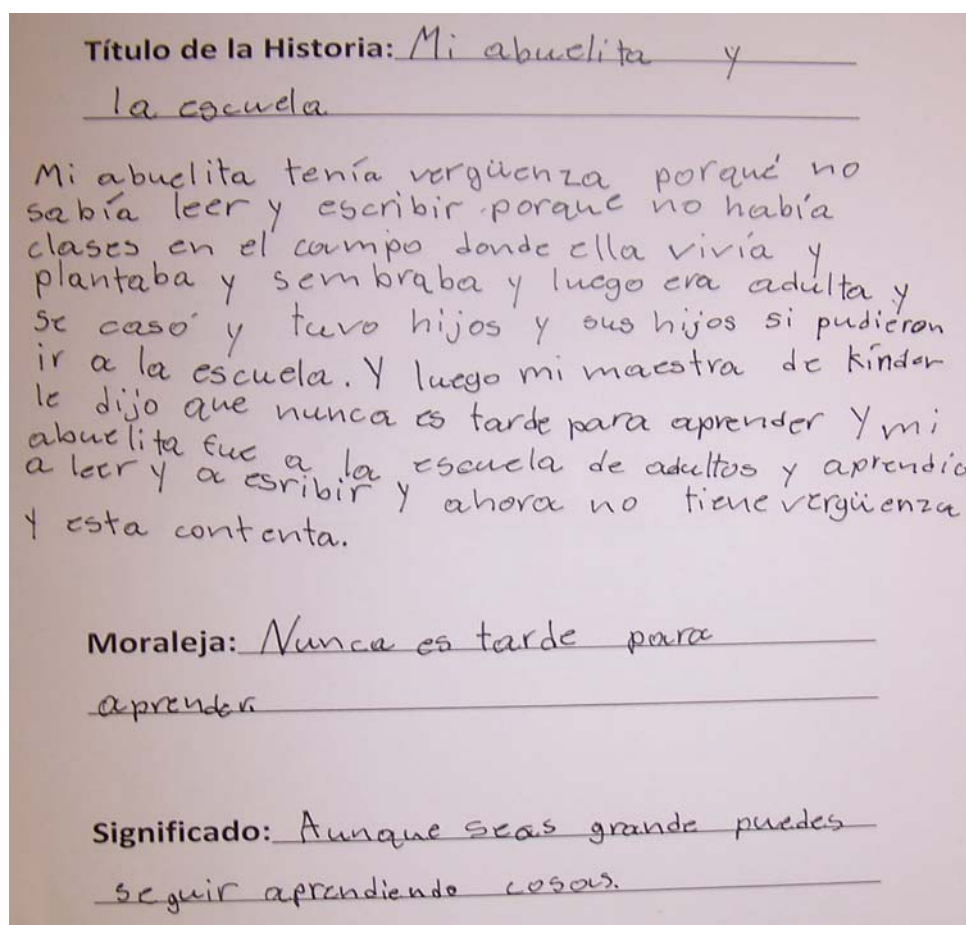 Título de la Historia: Mi abuelita y
la escuela
Mi abuelita tenía vergüenza porqué no
sabía leer y escribir porque no había
clases en el campo donde ella vivía y
plantaba y sembraba y luego era adulta y
se casó y tuvo hijos y sus hijos si pudieron
ir a la escuela. Y luego mi maestra de kínder
le dijo que nunca es tarde para aprender Y mi
abuelita fue a la escuela de adultos y aprendio
a leer y a esribir y ahora no tiene vergüenza
Y esta contenta.
Moraleja: Nunca es tarde para
aprender.
Significado: Aunque seas grande puedes
seguir aprendiendo cosas.